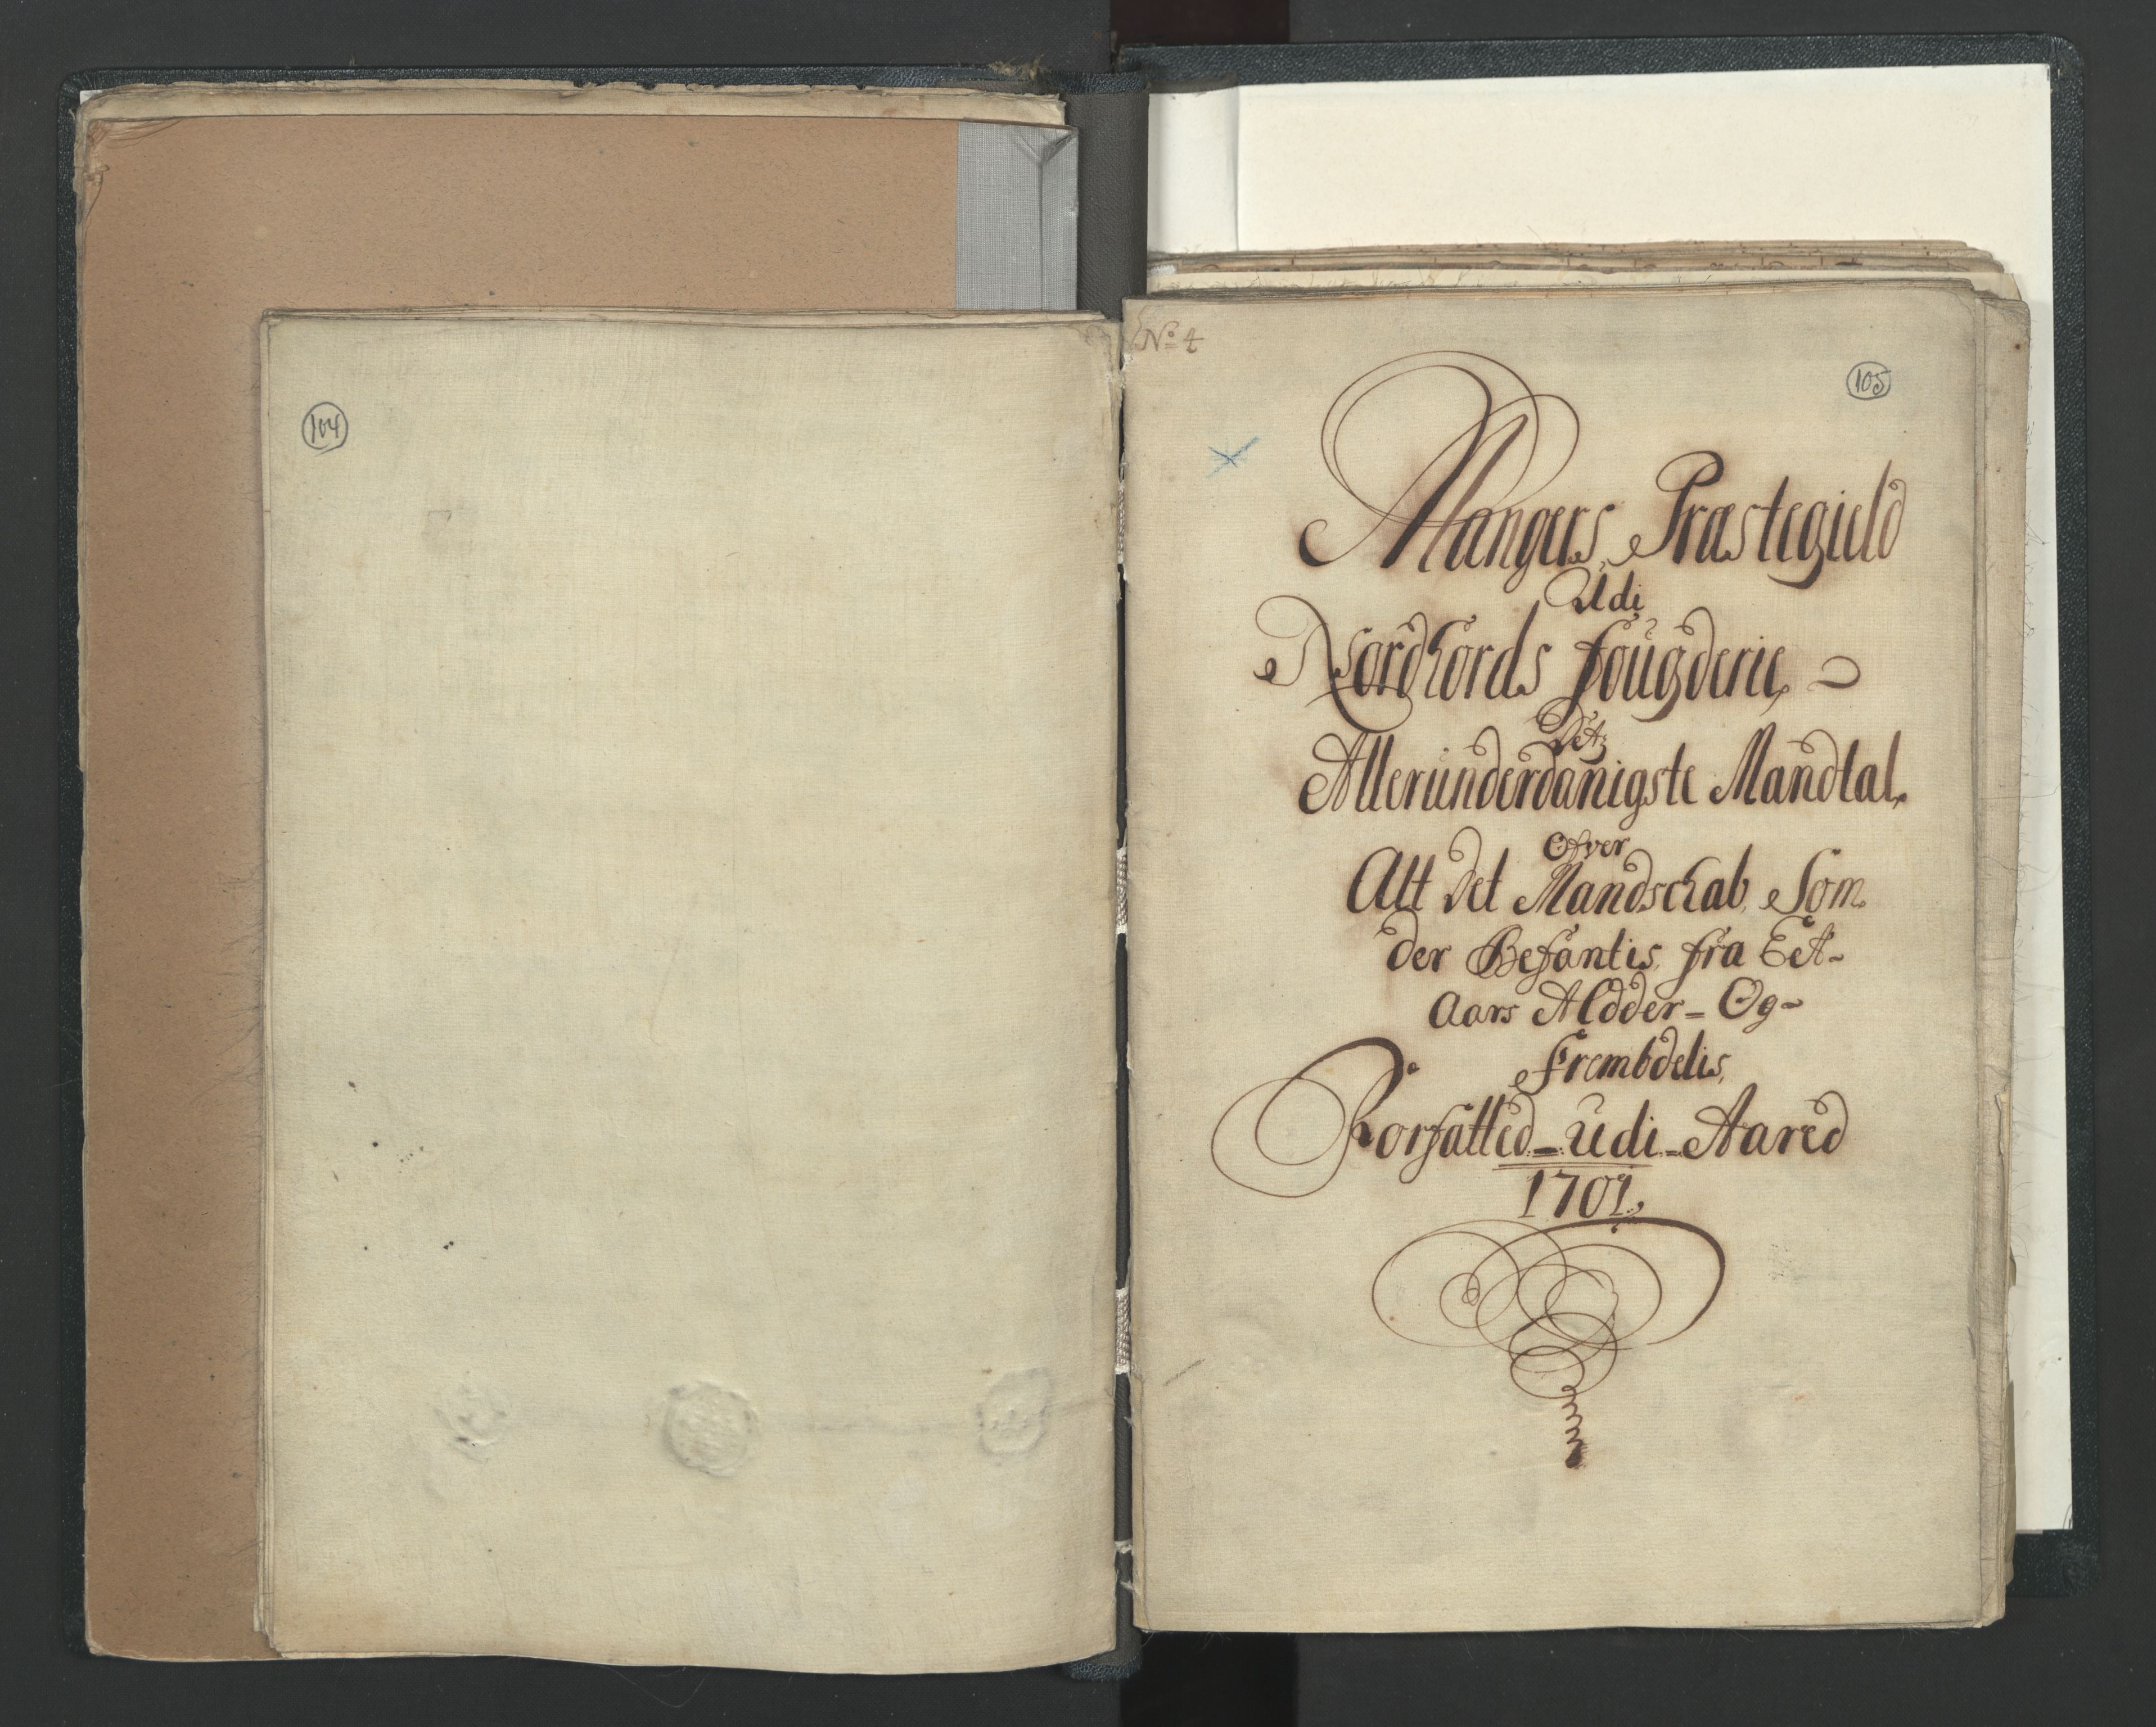 104
No. 4
105
Mangers Præstegield
Udi
Nordhords fougderie
Det
Allerunderdanigste Mandtal
Ofver
Alt det Mandschab Som
der Befantis fra Eet
Aars Aldder - Og
frembdelis
Forfatted - udi - Aared
1701